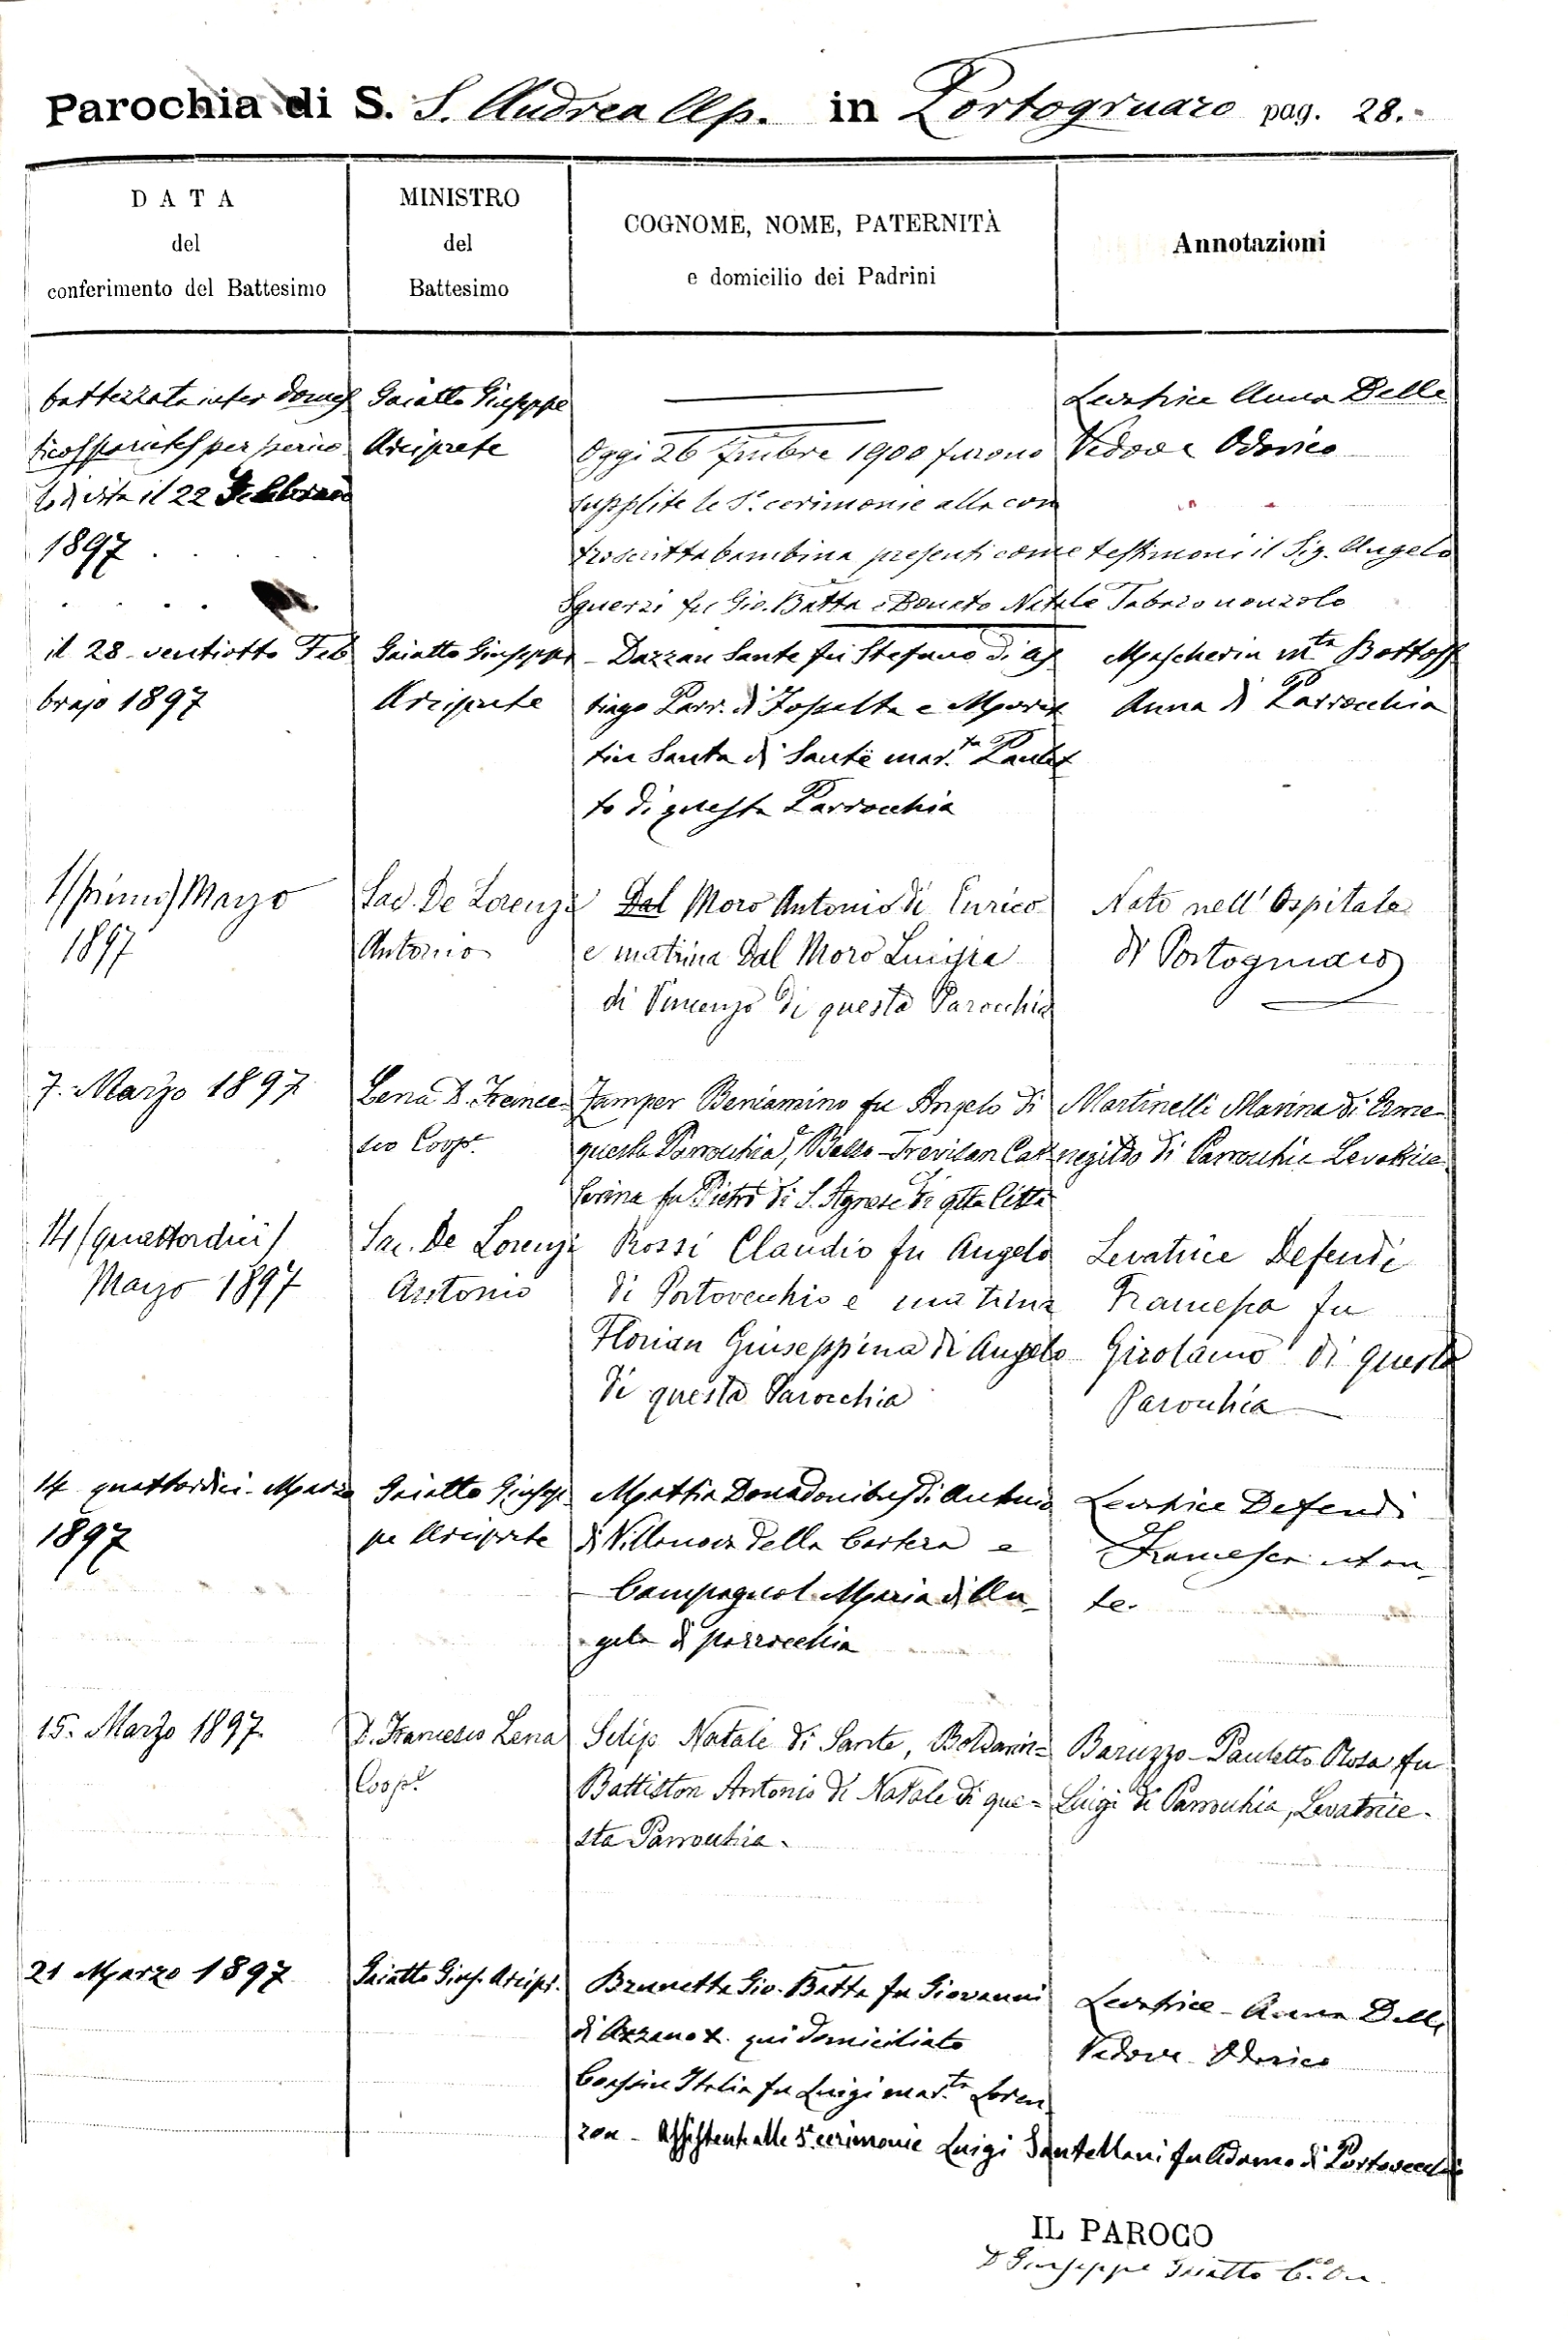 Parochia di S. S. Andrea Ap. in Portogruaro pag. 28.
DATA
del
conferimento del Battesimo
MINISTRO
del
Battesimo
COGNOME, NOME, PATERNITÀ
e domicilio dei Padrini
Annotazioni
battezzata inter domes
ticos parietes per perico
lo di vita il 22 Febbraio
1897
Gaiatto Giuseppe
Arciprete
Oggi 26 9mbre 1900 furono
supplite le S. cerimonie alla con
troscritta bambina presenti come testimoni il Sig. Angelo
Sguerzi fu Gio. Batta e Donato Natale Fabro nonzolo
Levatrice Anna Delle
Vedove Odorico
il 28 ventiotto Feb
brajo 1897
Gaiatto Giuseppe
Arciprete
Dazzan Sante fu Stefano di
Parr. di Fossalta e
tin Santa di Sante mar.ta Paulet
to di questa Parrocchia
Mascherin m.ta
Anna di Parrocchia
1/primo/ Marzo
1897
Sac. De Lorenzi
Antonio
Dal Moro Antonio di Enrico
e matrina Dal Moro Luigia
di Vincenzo di questa Parocchia
Nato nell' Ospitale
di Portogruaro
7. Marzo 1897
Lena D. France-
sco Coop.e
Zamper Beniamino fu Angelo di
questa Parrocchia, e Trevisan Cat
terina fu Pietro di S. Agnese di qsta Città
Martinelli Marina di Erme-
negildo di Parrocchia Levatrice
14 /quattordici/
Marzo 1897
Sac. De Lorenzi
Antonio
Rossi Claudio fu Angelo
di Portovecchio e matrina
Florian Giuseppina di Angelo
di questa Parocchia
Levatrice Defendi
Francesca fu
Girolamo di questa
Parocchia
14 quattordici Marzo
1897
Gaiatto Giusep
pe Arciprete
Mattia Donadonibus di Antonio
di Villanova della Cartera e
Campagnol Maria di An-
gelo di parrocchia
Levatrice Defendi
Francesca
te.
15. Marzo 1897.
D. Francesco Lena
Coop.e
Selip Natale di Sante, Boldarin=
Battiston Antonio di Natale di que=
sta Parrocchia.
Baruzzo-Pauletto Rosa fu
Luigi di Parrocchia, Levatrice.
21 Marzo 1897
Gaiatto Gius. Arcipr.
Brunetta Gio. Batta fu Giovanni
di Azzano X. qui domiciliato
Italia fu Luigi mar.ta Loren
zon - Assistente alle S. cerimonie Luigi Santellani fu Adamo di Portovecchio
Levatrice - Anna Delle
Vedove Odorico
IL PAROCO
D Giuseppe Gaiatto